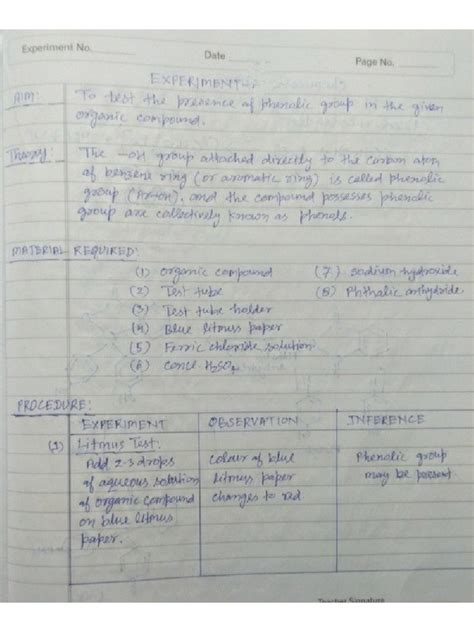 Experiment No.
Date
Page No.
EXPERIMENT
AIM:
To test the presence of phenolic group in the given
organic compound.
Theory:
The -OH group attached directly to the carbon atom
of benzene ring (or aromatic ring) is called phenolic
group (Ar-OH), and the compound possesses phenolic
group are collectively known as phenols.
MATERIAL REQUIRED:
(1) organic compound
(2) Test tube
(3) Test tube holder
(4) Blue litmus paper
(5) Ferric chloride solution
(6) Conc. H2SO4
(7) sodium hydroxide
(8) Phthalic anhydride
PROCEDURE:
EXPERIMENT OBSERVATION INFERENCE
(1) Litmus Test.
Add 2-3 drops
of aqueous solution
of organic compound
on blue litmus
paper.
Colour of blue
litmus paper
changes to red
Phenolic group
may be present.
Teacher Signature